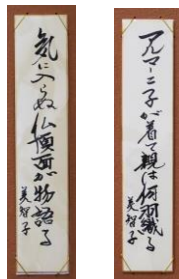 アルマーニ子が着て親は何羽織る
美智子
氣に入らぬ仏頂面が物語る
美智子